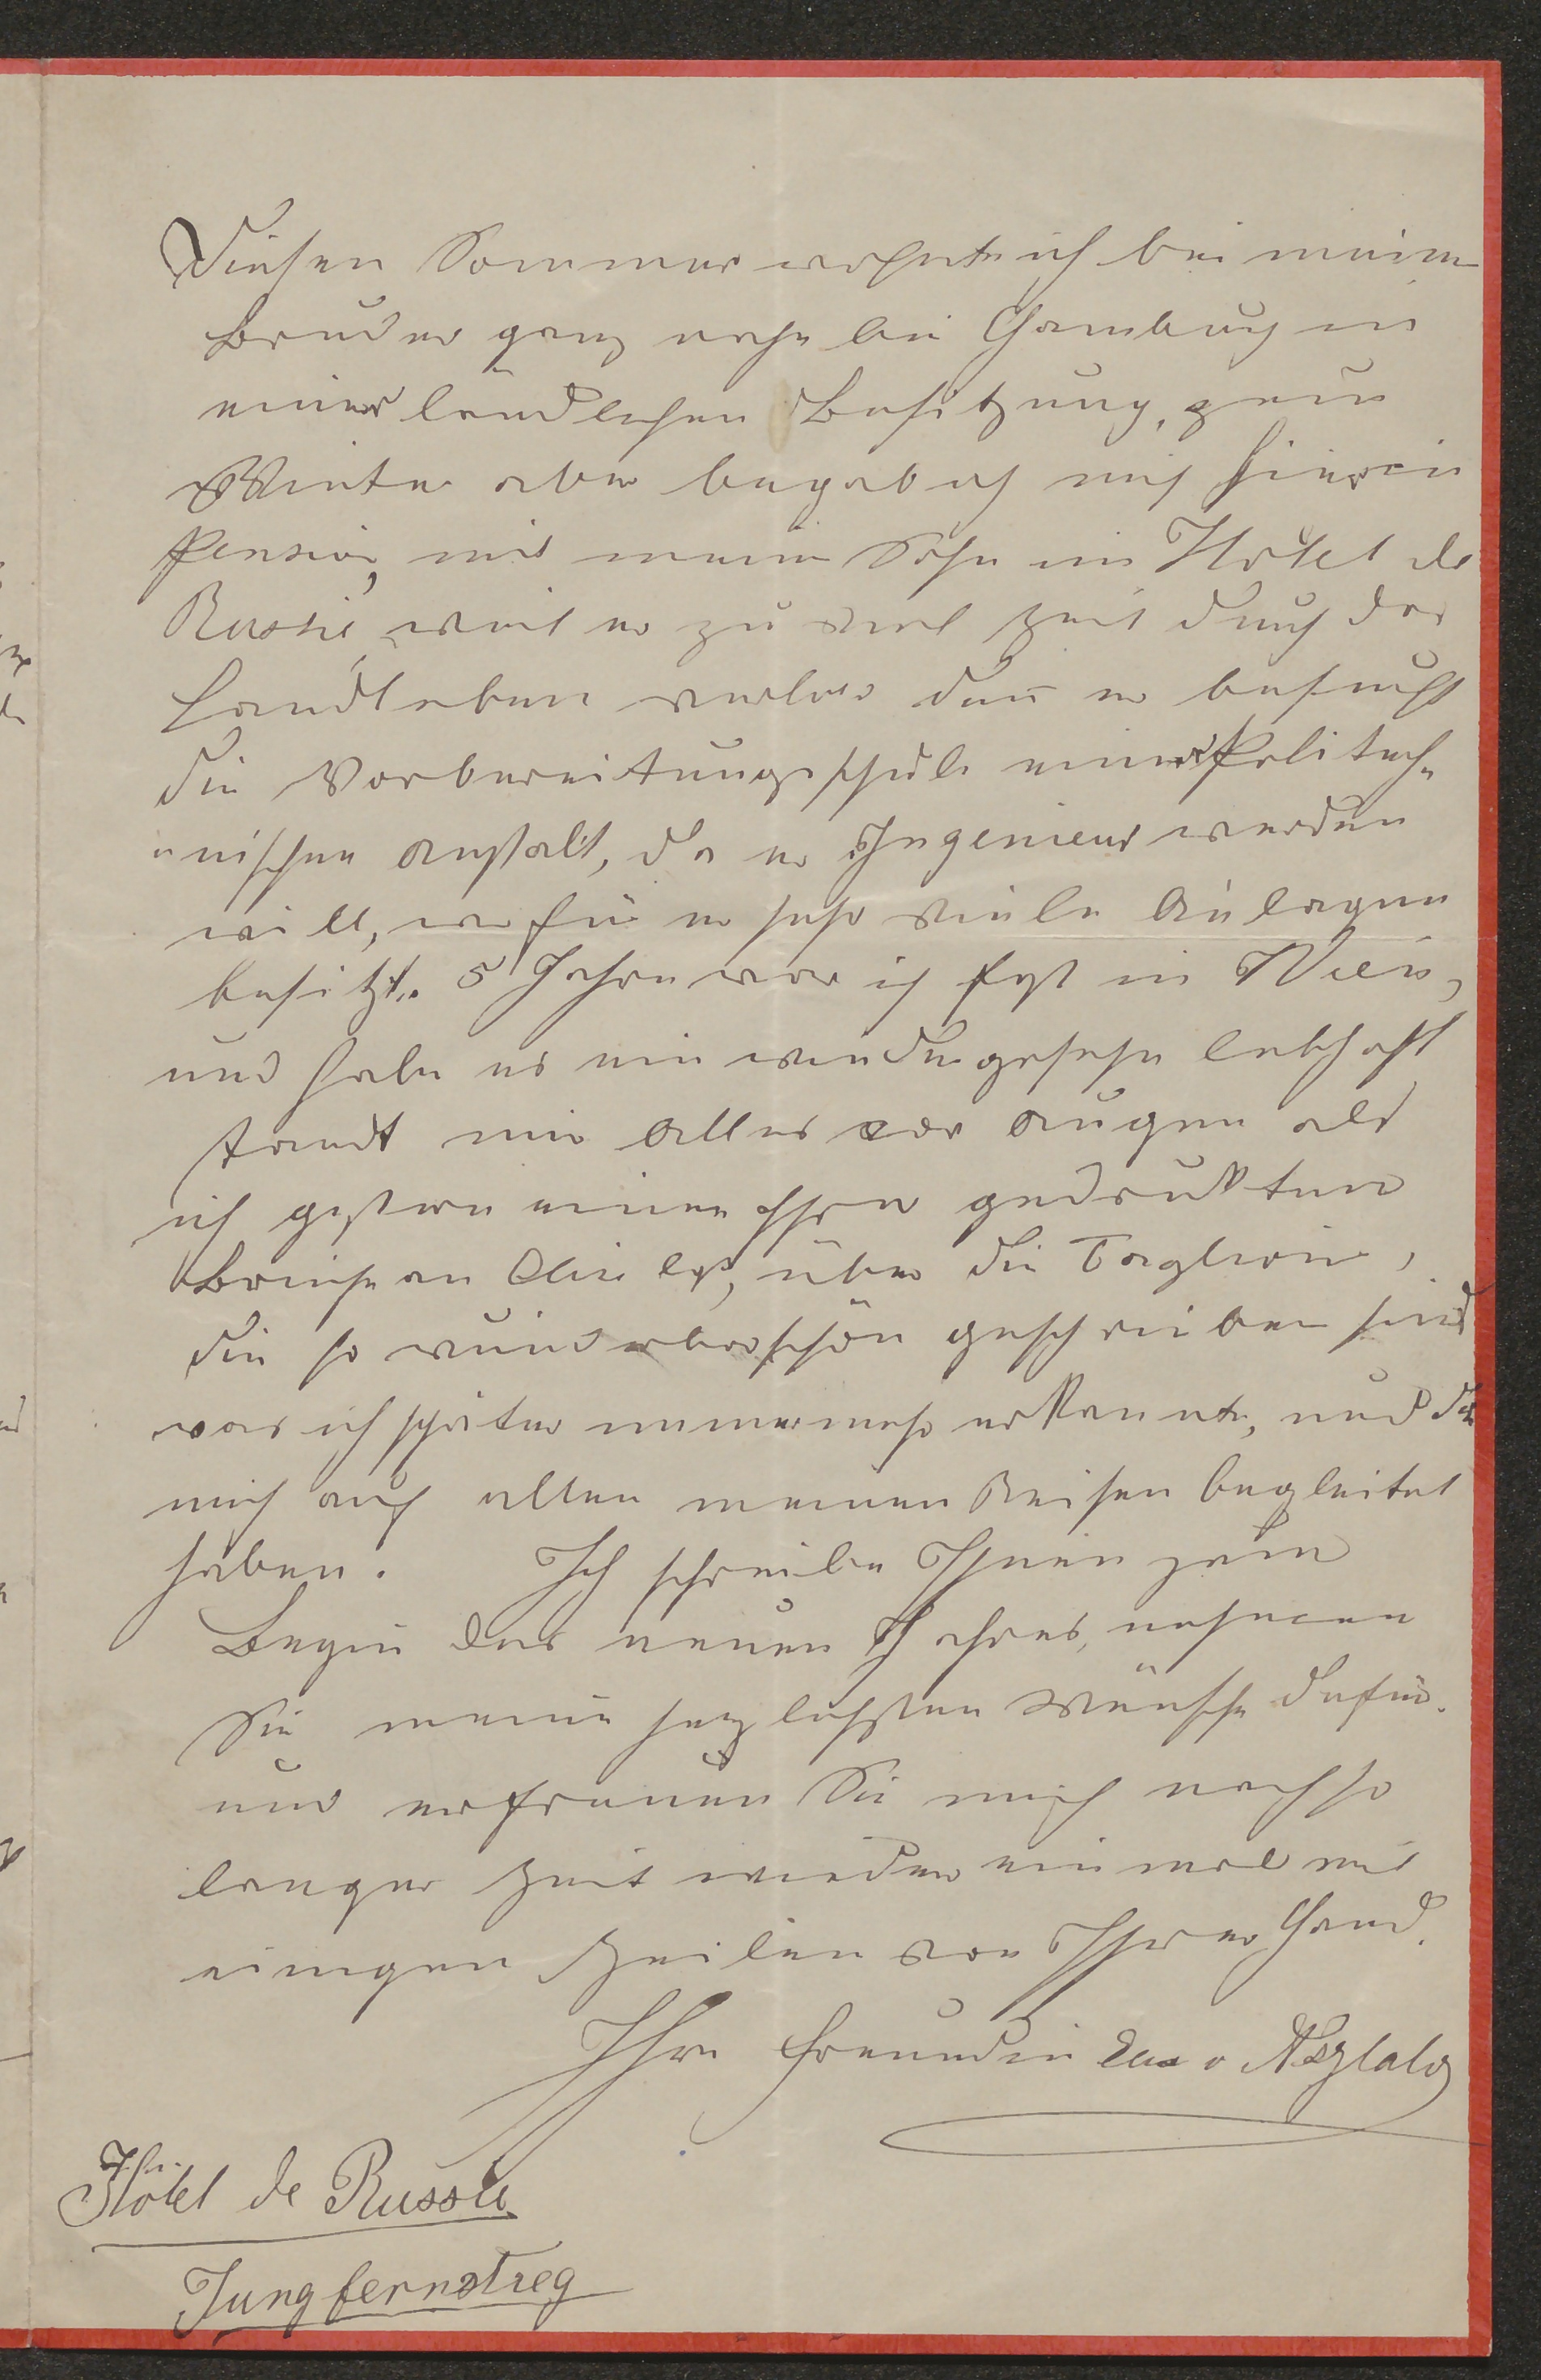 Diesen Sommer wohnte ich bei meinem
Bruder ganz nahe bei Hamburg in
einer ländlichen Besitzung, zum
Winter aber begab ich mich hier in
Pension, mit meinem Sohn im Hôtel de
Russie, weil er zu viel Zeit durch das
Landleben verlor den er besucht
die Vorbereitungsschule einer Politech=
nischen Anstalt, da er Ingenieur werden
will, wofür er sehr viele Anlagen
besitzt. 5 Jahre war ich fast in Wien,
und habe es nie wiedergesehn lebhaft
standt mir Alles vor Augen als
ich gestern einen Ihrer gedruckten
Briefe an las, über die Taglioni,
die so wunderbarschön geschrieben sind
was ich später immermehr erkannte, und die
mich auf allen meinen Reisen begleitet
haben. Ich schreibe Ihnen zum
Begin des neuen Jahres, nehmen
Sie meine herzlichsten Wünsche dafür.
und erfreuen Sie mich nach so
langer Zeit wieder einmal mit
einigen Zeilen von Ihrer Hand.
Ihre Freundin v
Hôtel de Russie
Jungfernstieg